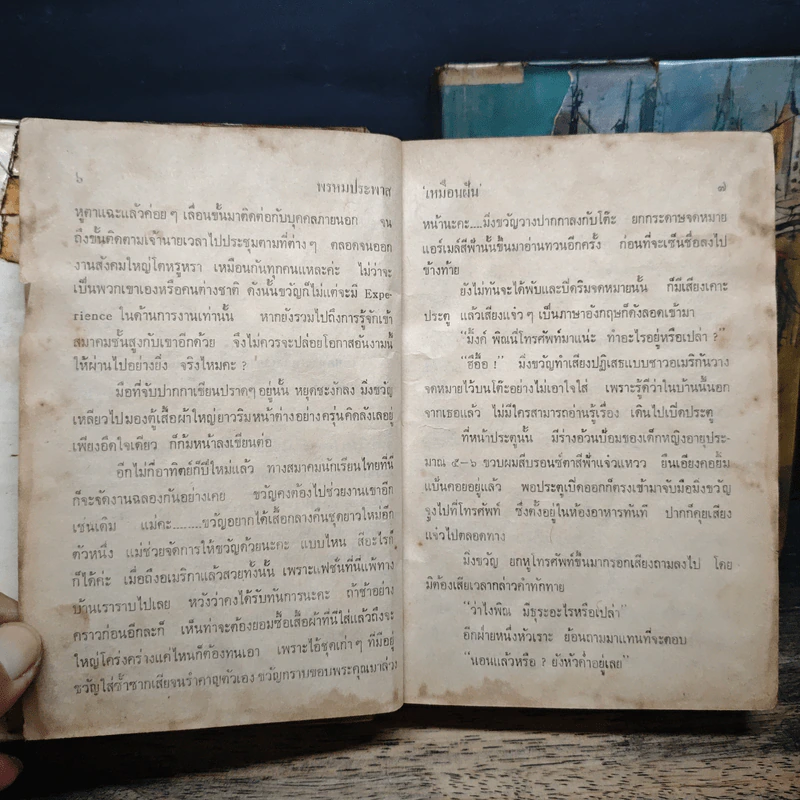 ๖
พรหมประพาส
หูตาแฉะแล้วค่อย ๆ เลื่อนขั้นมาติดต่อกับบุคคลภายนอก จน
ถึงขั้นติดตามเจ้านายเวลาไปประชุมตามที่ต่าง ๆ ตลอดจนออก
งานสังคมใหญ่โตหรูหรา เหมือนกันทุกคนแหละค่ะ ไม่ว่าจะ
เป็นพวกเขาเองหรือคนต่างชาติ ดังนั้นขวัญก็ไม่แต่จะมี Expe-
rience ในด้านการงานเท่านั้น หากยังรวมไปถึงการรู้จักเข้า
สมาคมชั้นสูงกับเขาอีกด้วย จึงไม่ควรจะปล่อยโอกาสอันงามนี้
ให้ผ่านไปอย่างยิ่ง จริงไหมคะ ?
มือที่จับปากกาเขียนปราดๆ อยู่นั้น หยุดชะงักลง มิ่งขวัญ
เหลียวไปมองตู้เสื้อผ้าใหญ่ยาวริมหน้าต่างอย่างครุ่นคิดลังเลอยู่
เพียงอึดใจเดียว ก็ก้มหน้าลงเขียนต่อ
อีกไม่กี่อาทิตย์ก็ปีใหม่แล้ว ทางสมาคมนักเรียนไทยที่นี่
ก็จะจัดงานฉลองกันอย่างเคย ขวัญคงต้องไปช่วยงานเขาอีก
เช่นเดิม แม่คะ.........ขวัญอยากได้เสื้อกลางคืนชุดยาวใหม่อีก
ตัวหนึ่ง แม่ช่วยจัดการให้ขวัญด้วยนะคะ แบบไหน สีอะไรก็
ก็ได้ค่ะ เมื่อถึงอเมริกาแล้วสวยทั้งนั้น เพราะแฟชั่นที่นี่แพ้ทาง
บ้านเราราบไปเลย หวังว่าคงได้รับทันการนะคะ ถ้าช้าอย่าง
คราวก่อนอีกละก็ เห็นท่าจะต้องยอมซื้อเสื้อผ้าที่นี่ใส่แล้วถึงจะ
ใหญ่โคร่งคร่างแค่ไหนก็ต้องทนเอา เพราะไอ้ชุดเก่าๆ ที่มีอยู่
ขวัญใส่ซ้ำซากเสียจนรำคาญตัวเอง ขวัญกราบขอบพระคุณมาล่วง
'เหมือนฝัน'
๗
หน้านะคะ....มิ่งขวัญวางปากกาลงกับโต๊ะ ยกกระดาษจดหมาย
แอร์เมล์สีฟ้านั้นขึ้นมาอ่านทวนอีกครั้ง ก่อนที่จะเซ็นชื่อลงไป
ข้างท้าย
ยังไม่ทันจะได้พับและปิดริมจดหมายนั้น ก็มีเสียงเคาะ
ประตู แล้วเสียงแจ๋ว ๆ เป็นภาษาอังกฤษก็ดังลอดเข้ามา
"มิ้งค์ พิณนี่โทรศัพท์มาแน่ะ ทำอะไรอยู่หรือเปล่า ?"
"ฮึอื้อ !" มิ่งขวัญทำเสียงปฏิเสธแบบชาวอเมริกันวาง
จดหมายไว้บนโต๊ะอย่างไม่เอาใจใส่ เพราะรู้ดีว่าในบ้านนี้นอก
จากเธอแล้ว ไม่มีใครสามารถอ่านรู้เรื่อง เดินไปเปิดประตู
ที่หน้าประตูนั้น มีร่างอ้วนป้อมของเด็กหญิงอายุประ-
มาณ ๕-๖ ขวบผมสีบรอนซ์ตาสีฟ้าแจ๋วแหวว ยืนเอียงคอยิ้ม
แป้นคอยอยู่แล้ว พอประตูเปิดออกก็ตรงเข้ามาจับมือมิ่งขวัญ
จูงไปที่โทรศัพท์ ซึ่งตั้งอยู่ในห้องอาหารทันที ปากก็คุยเสียง
แจ๋วไปตลอดทาง
มิ่งขวัญ ยกหูโทรศัพท์ขึ้นมากรอกเสียงถามลงไป โดย
มิต้องเสียเวลากล่าวคำทักทาย
"ว่าไงพิณ มีธุระอะไรหรือเปล่า"
อีกฝ่ายหนึ่งหัวเราะ ย้อนถามมาแทนที่จะตอบ
"นอนแล้วหรือ ? ยังหัวค่ำอยู่เลย"